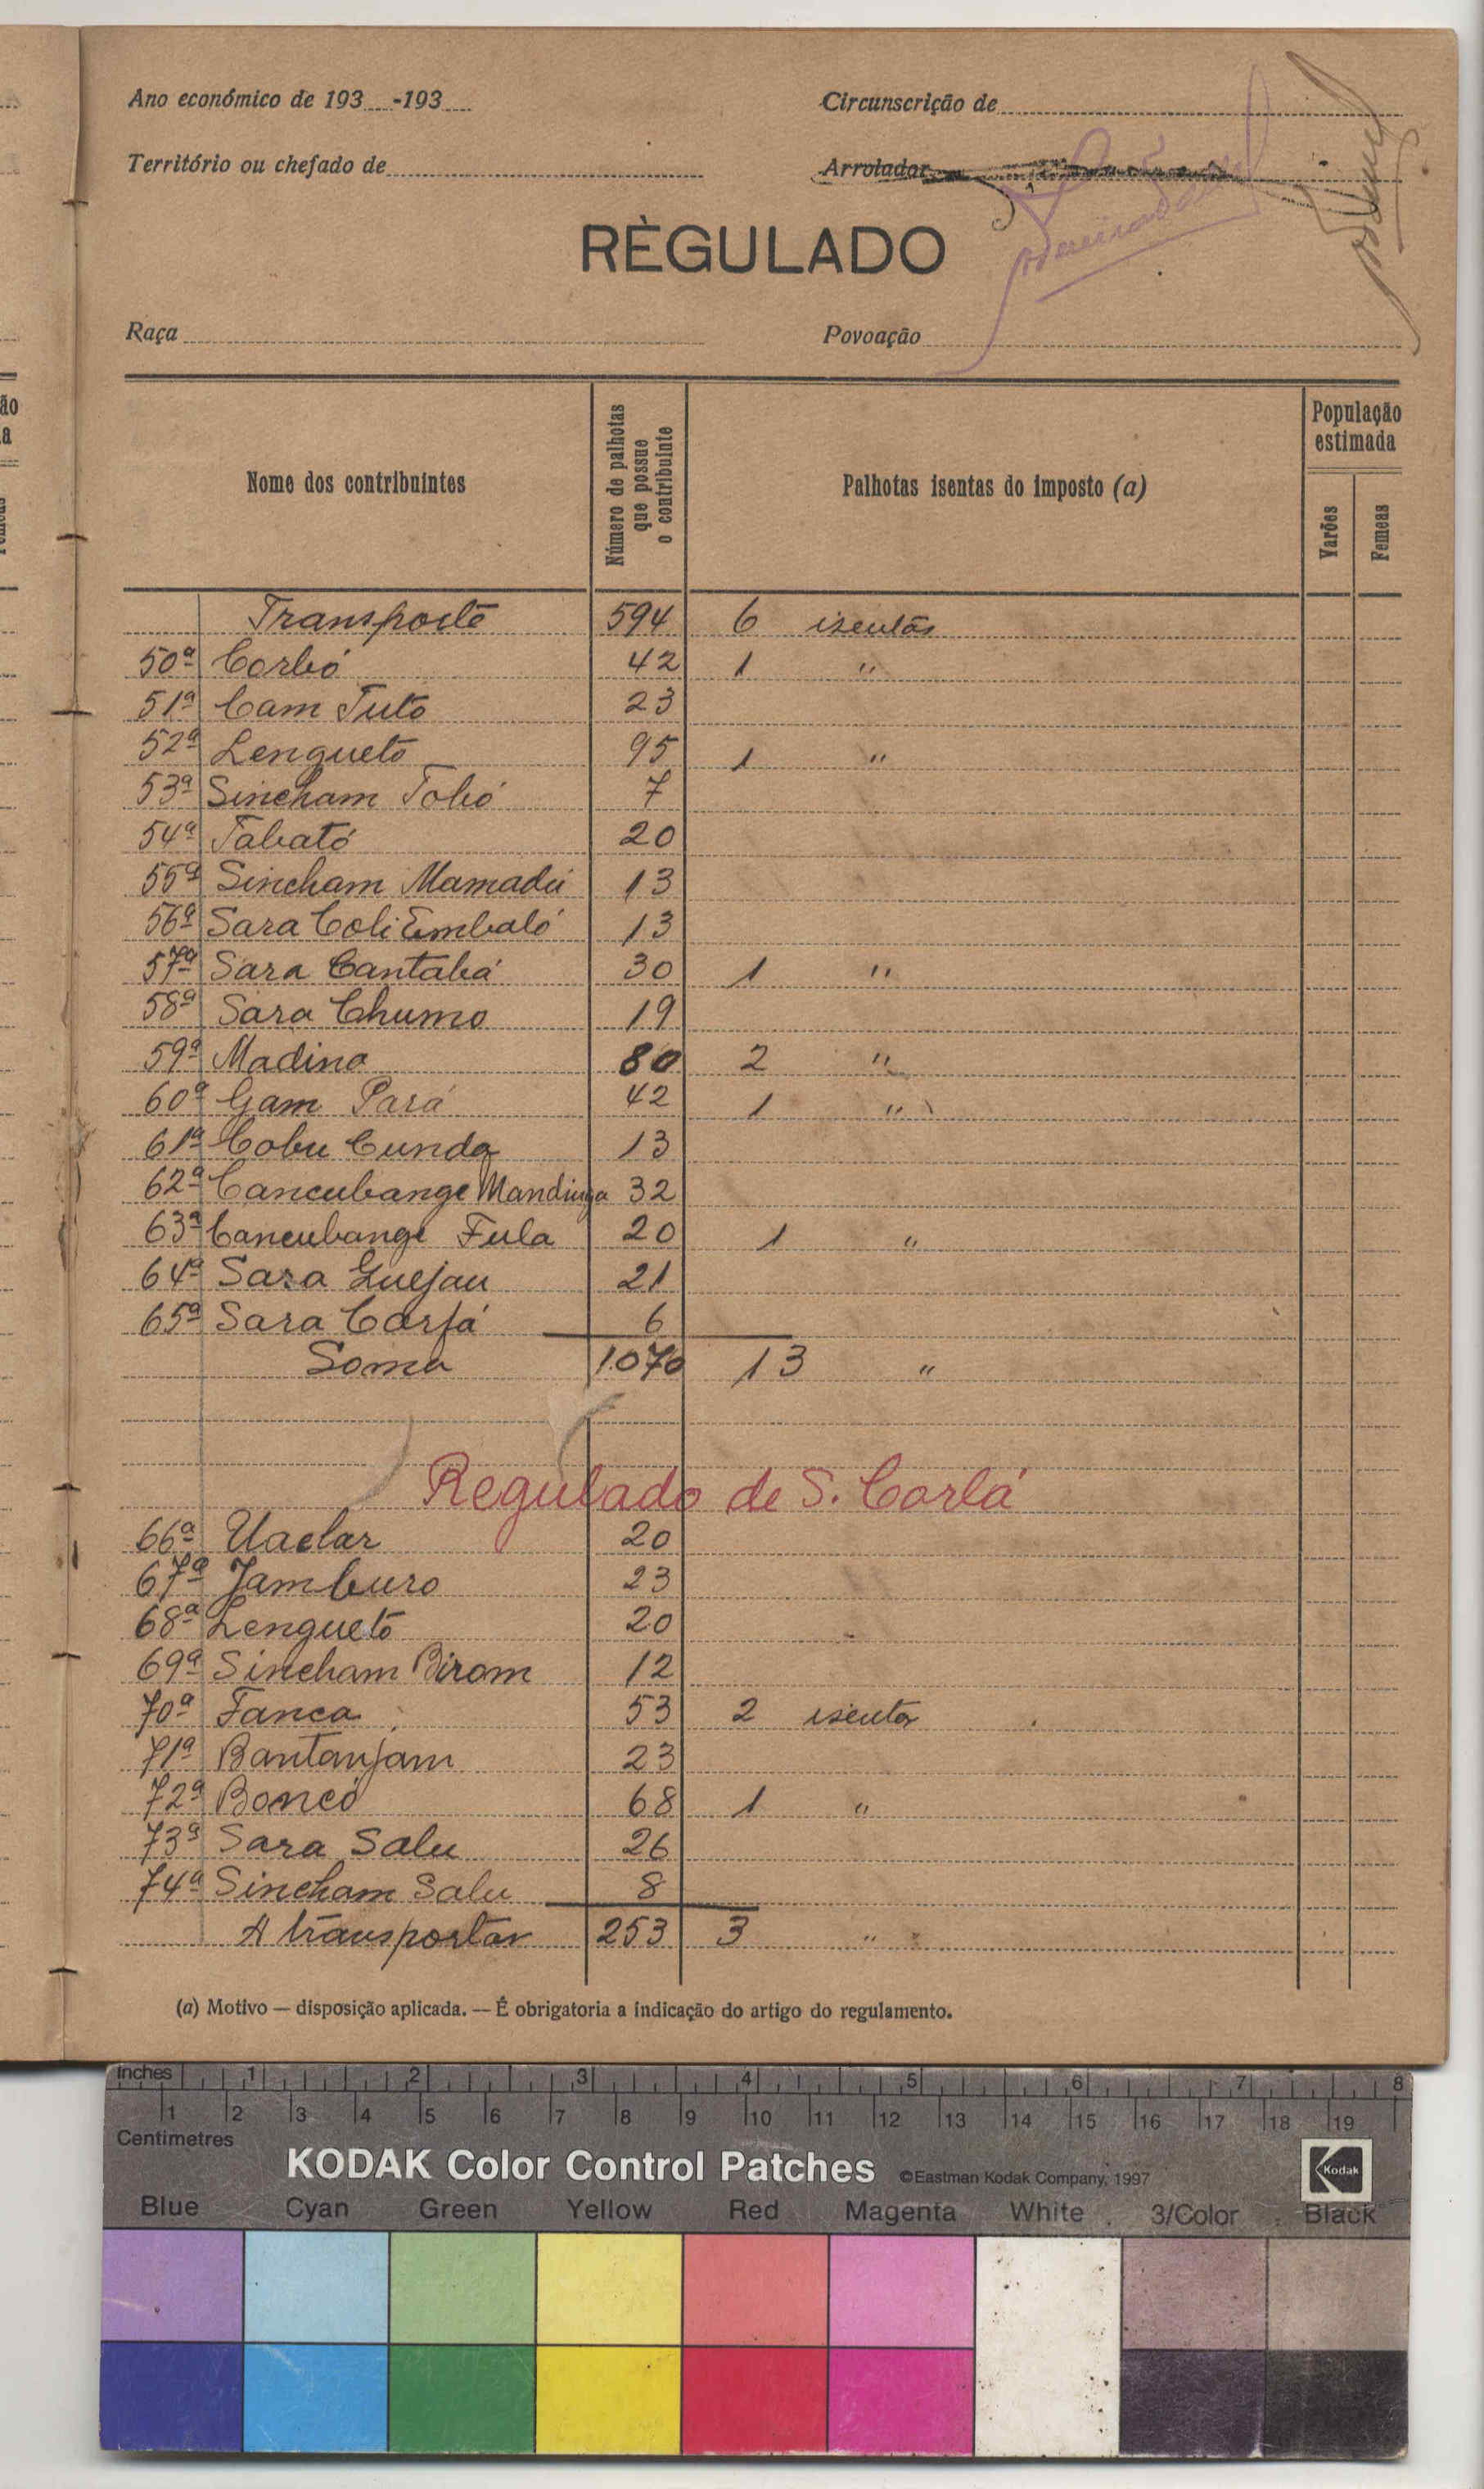 Ano económico de 193 -193
Circunscrição de
Território ou chefado de
Arrolador
RÈGULADO
Raça
Povoação
Nome dos contribuintes
Número de palhotas que possue o contribuinte
Palhotas isentas do imposto (a)
População estimada
Varões
Femeas
Transporte 594 6 isentas
50ª Corbó 42 1 "
51ª Cam Tuto 23
52ª Lengueto 95 1 "
53ª Sincham Tobó 7
54ª Tabató 20
55ª Sincham Mamadú 13
56ª Sara Coli Embaló 13
57ª Sara Cantabá 30 1 "
58ª Sara Chumo 19
59ª Madina 80 2 "
60ª Gam Pará 42 1 "
61ª Cobu Cunda 13
62ª Cancubange Mandinga 32
63ª Cancubange Fula 20 1 "
64ª Sara Guejau 21
65ª Sara Carfá 6
Soma 1.070 13 "
Regulado de S. Corlá
66ª Uaelar 20
67ª Jamburo 23
68ª Lengueto 20
69ª Sincham Birom 12
70ª Fanca 53 2 isentas
71ª Bantanjam 23
72ª Boncó 68 1 "
73ª Sara Salu 26
74ª Sincham Salu 8
A transportar 253 3 "
(a) Motivo — disposição aplicada. — É obrigatoria a indicação do artigo do regulamento.
Inches 1 2 3 4 5 6 7 8
1 2 3 4 5 6 7 8 9 10 11 12 13 14 15 16 17 18 19
Centimetres
KODAK Color Control Patches ©Eastman Kodak Company, 1997 Kodak
Blue Cyan Green Yellow Red Magenta White 3/Color Black